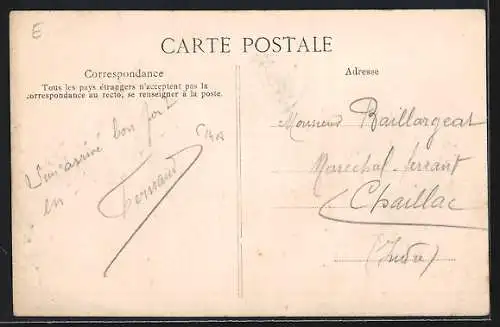 E
CARTE POSTALE
Correspondance
Tous les pays étrangers n'acceptent pas la
correspondance au recto, se renseigner à la poste.
arrivé bon port
en
Fernand
Adresse
Monsieur Baillargeat
Maréchal ferrant
Chaillac
(Indre)